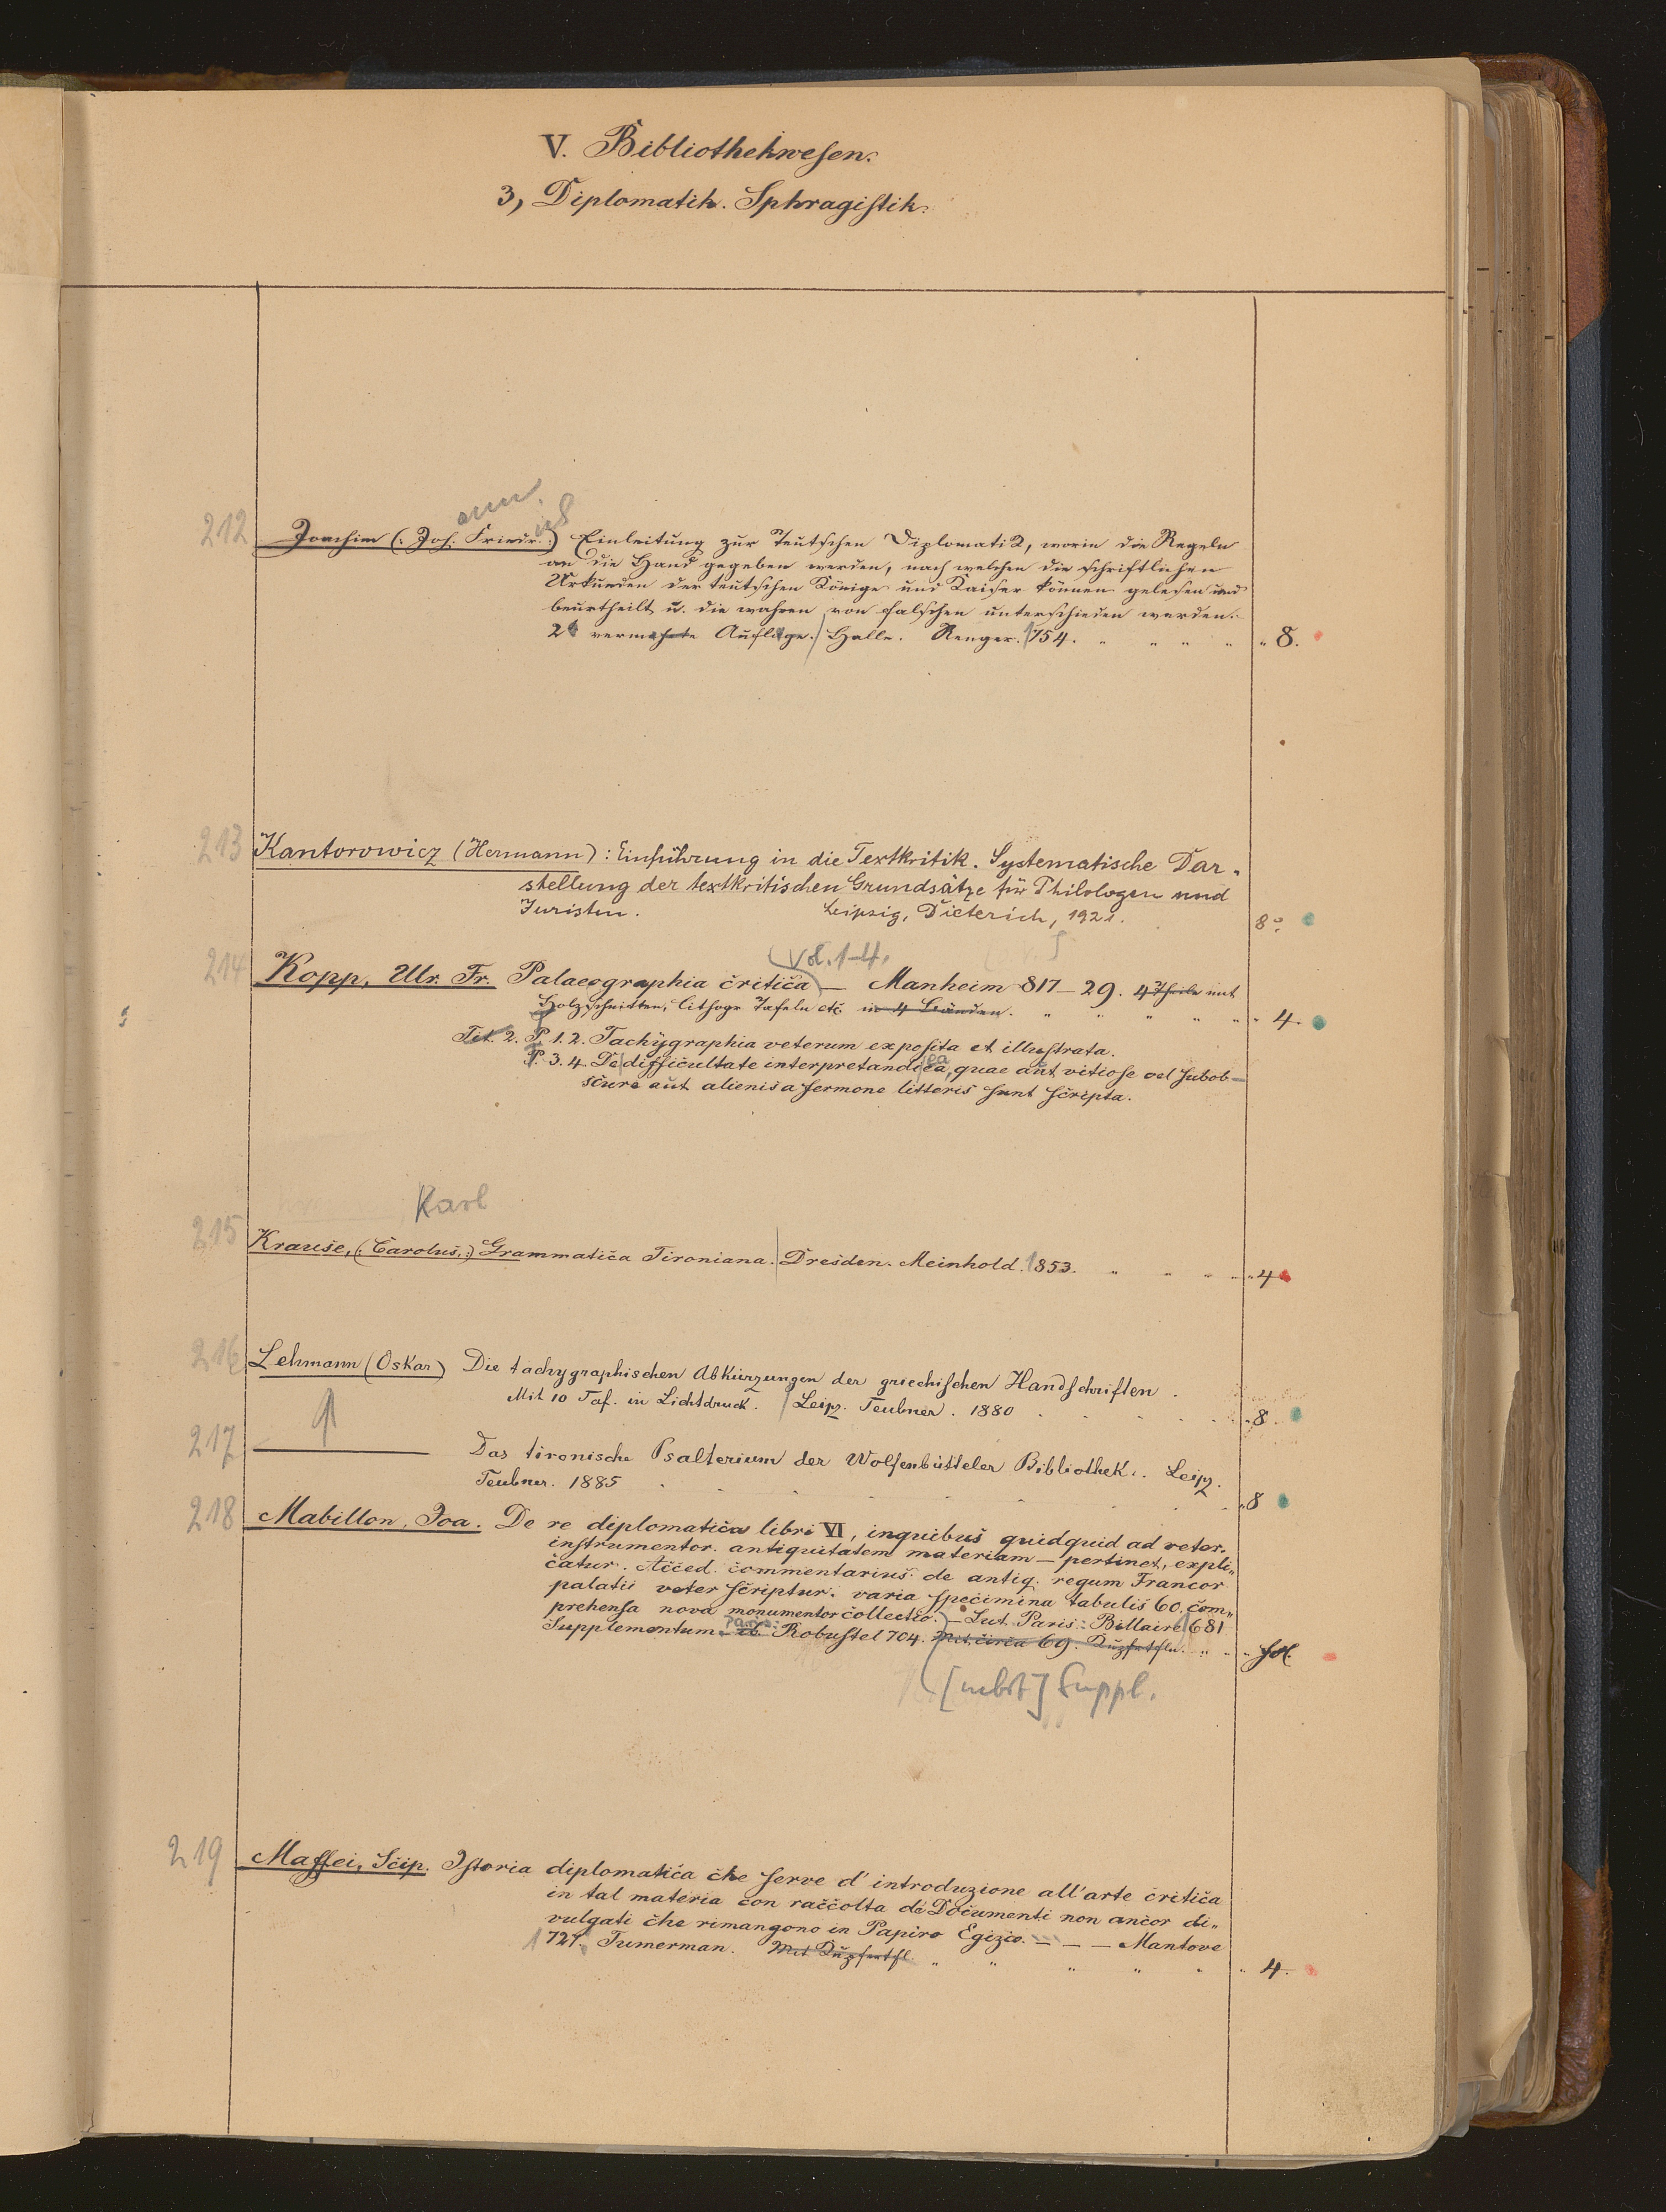 V. Bibliothekwesen.
3, Diplomatik. Sphragistik.
ann.
ich
212 Joachim (: Joh. Friedr. :) Einleitung zur Teutschen Diplomatik, worin die Regeln
an die Hand gegeben werden, nach welchen die schriftlichen
Urkunden der teutschen Könige und Kaiser können gelesen und
beurtheilt u. die wahren von falschen unterschieden werden.
2 vermehrte Auflage. Halle. Renger. 1754. " " " " " 8.
213 Kantorowicz (Hermann): Einführung in die Textkritik. Systematische Dar-
stellung der textkritischen Grundsätze für Philologen und
Juristen. Leipzig, Dieterich, 1921. 8°
(vol. 1-4.
214 Kopp, Ulr. Fr. Palaeographia critica — Manheim 817-29. 4 Theile mit
Holzschnitten, lithogr Tafeln etc. in 4 Bänden. " " " " " " 4.
Tit. 2. P. 1. 2. Tachygraphia veterum exposita et illustrata.
P. 3. 4. De difficultate interpretandi ea, quae aut vitiose vel subob-
scure aut alienis a sermone litteris sunt scripta.
Karl
215 Krause, (: Carolus, :) Grammatica Tironiana. Dresden. Meinhold. 1853. " " " " " 4
216 Lehmann (Oskar) Die tachygraphischen Abkürzungen der griechischen Handschriften.
Mit 10 Taf. in Lichtdruck. Leipz. Teubner. 1880 . . . . . " 8.
217 ——— Das tironische Psalterium der Wolfenbütteler Bibliothek. Leipz.
Teubner. 1885 . . . . . . " 8
218 Mabillon, Joa. De re diplomatica libri VI, in quibus quidquid ad veter.
instrumentor. antiquitatem materiam — pertinet, expli„
catur. Acced. commentarius de antiq. regum Francor
palatii veter scriptur. varia specimina tabulis 60. com„
prehensa nova monumentor collectio. — Lut. Paris. Billaire 1681
Paris:
Supplementum — ib. Robustel 704. Mit circa 69. Kupfertfln. " " " fol.
[nebst] Suppl.
219 Maffei, Scip. Istoria diplomatica che serve d'introduzione all'arte critica
in tal materia con raccolta de Documenti non ancor di„
vulgati che rimangono in Papiro Egizio. — — — Mantove
1727. Tumerman. Mit Kupfertfl. " " " " " " 4.